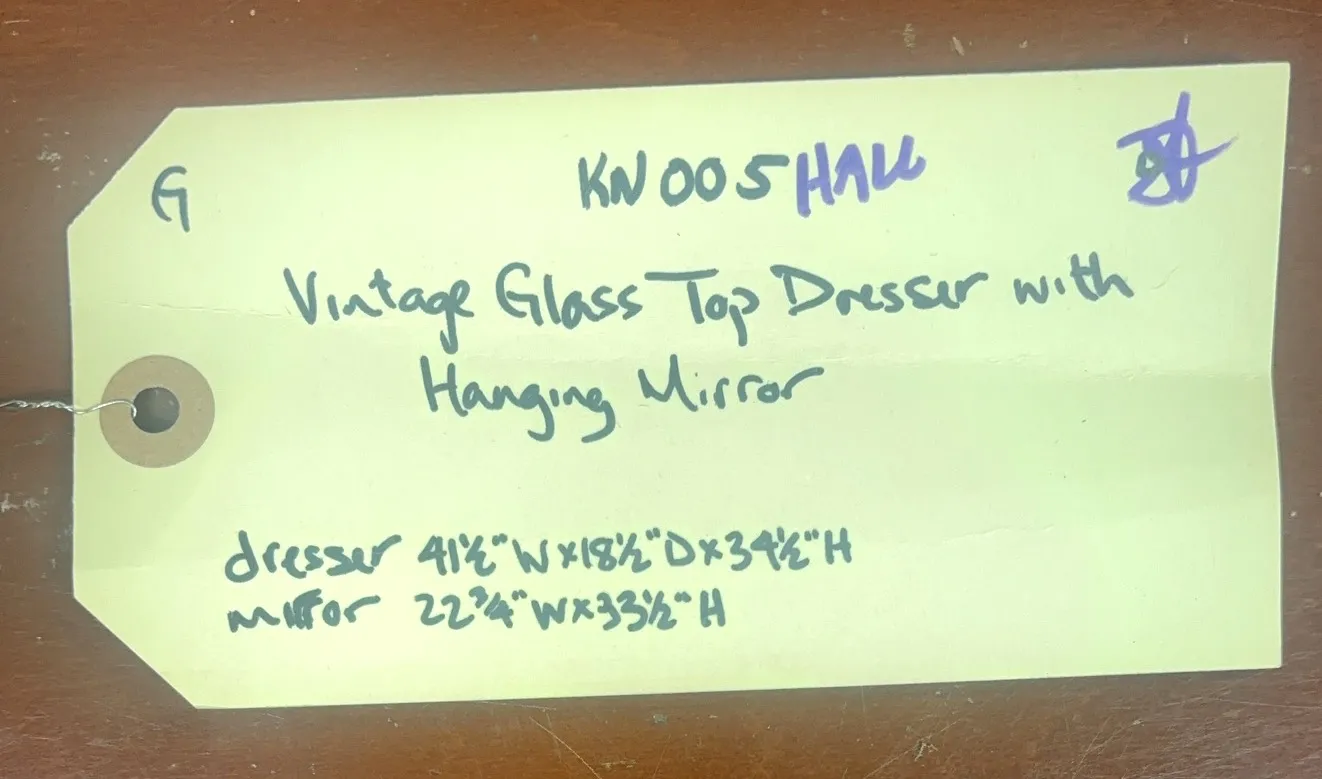 G KN005 HALL
Vintage Glass Top Dresser with
Hanging Mirror
dresser 41½" W x 18½" D x 34½" H
mirror 22¾" W x 33½" H